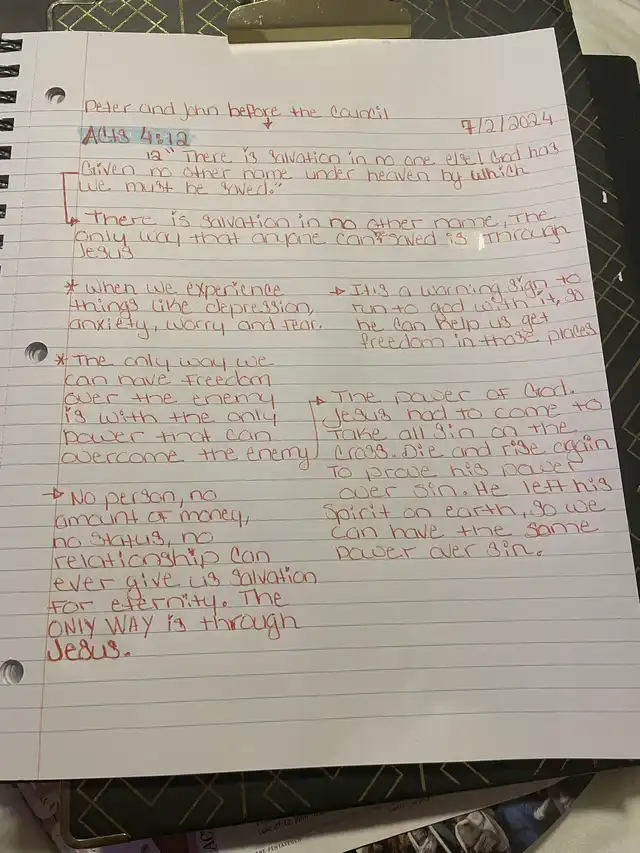 Peter and John before the Council
7/2/2024
ACTS 4:12
12 "There is salvation in no one else! God has
Given no other name under heaven by which
we must be saved."
There is salvation in no other name, The
only way that anyone can be saved is through
Jesus
* When we experience
things like depression,
anxiety, worry and fear.
It is a warning sign to
run to god with it, so
he can help us get
freedom in those places
* The only way we
can have freedom
over the enemy
is with the only
power that can
overcome the enemy
The power of God.
Jesus had to come to
take all sin on the
cross. Die and rise again
to prove his power
over sin. He left his
Spirit on earth, so we
can have the same
power over sin.
No person, no
amount of money,
no status, no
relationship can
ever give us salvation
for eternity. The
ONLY WAY is through
Jesus.